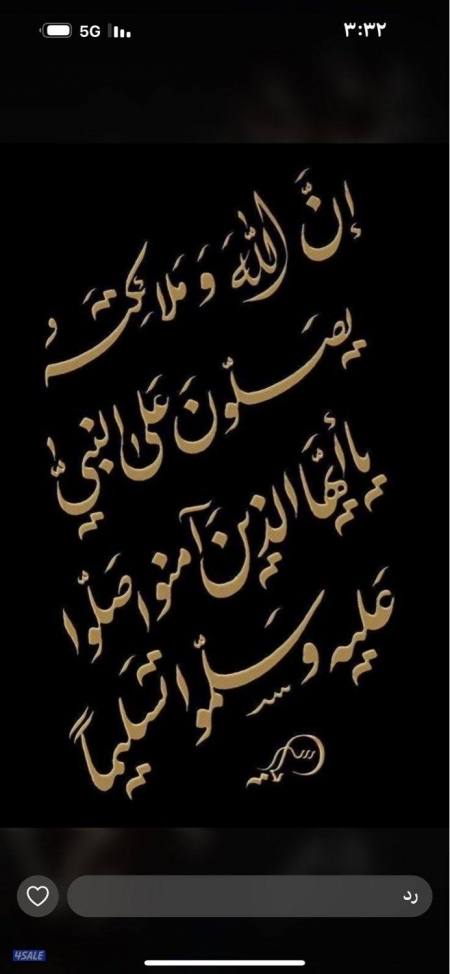 5G
٣:٣٢
إنَّ اللّهَ وَ مَلائِكتهُ
يصَلّونَ عَلى النبيّ
ياأيّها الذين آمنوا صَلّوا
عَليه وسَلّموا تسَليماً
رد
4SALE